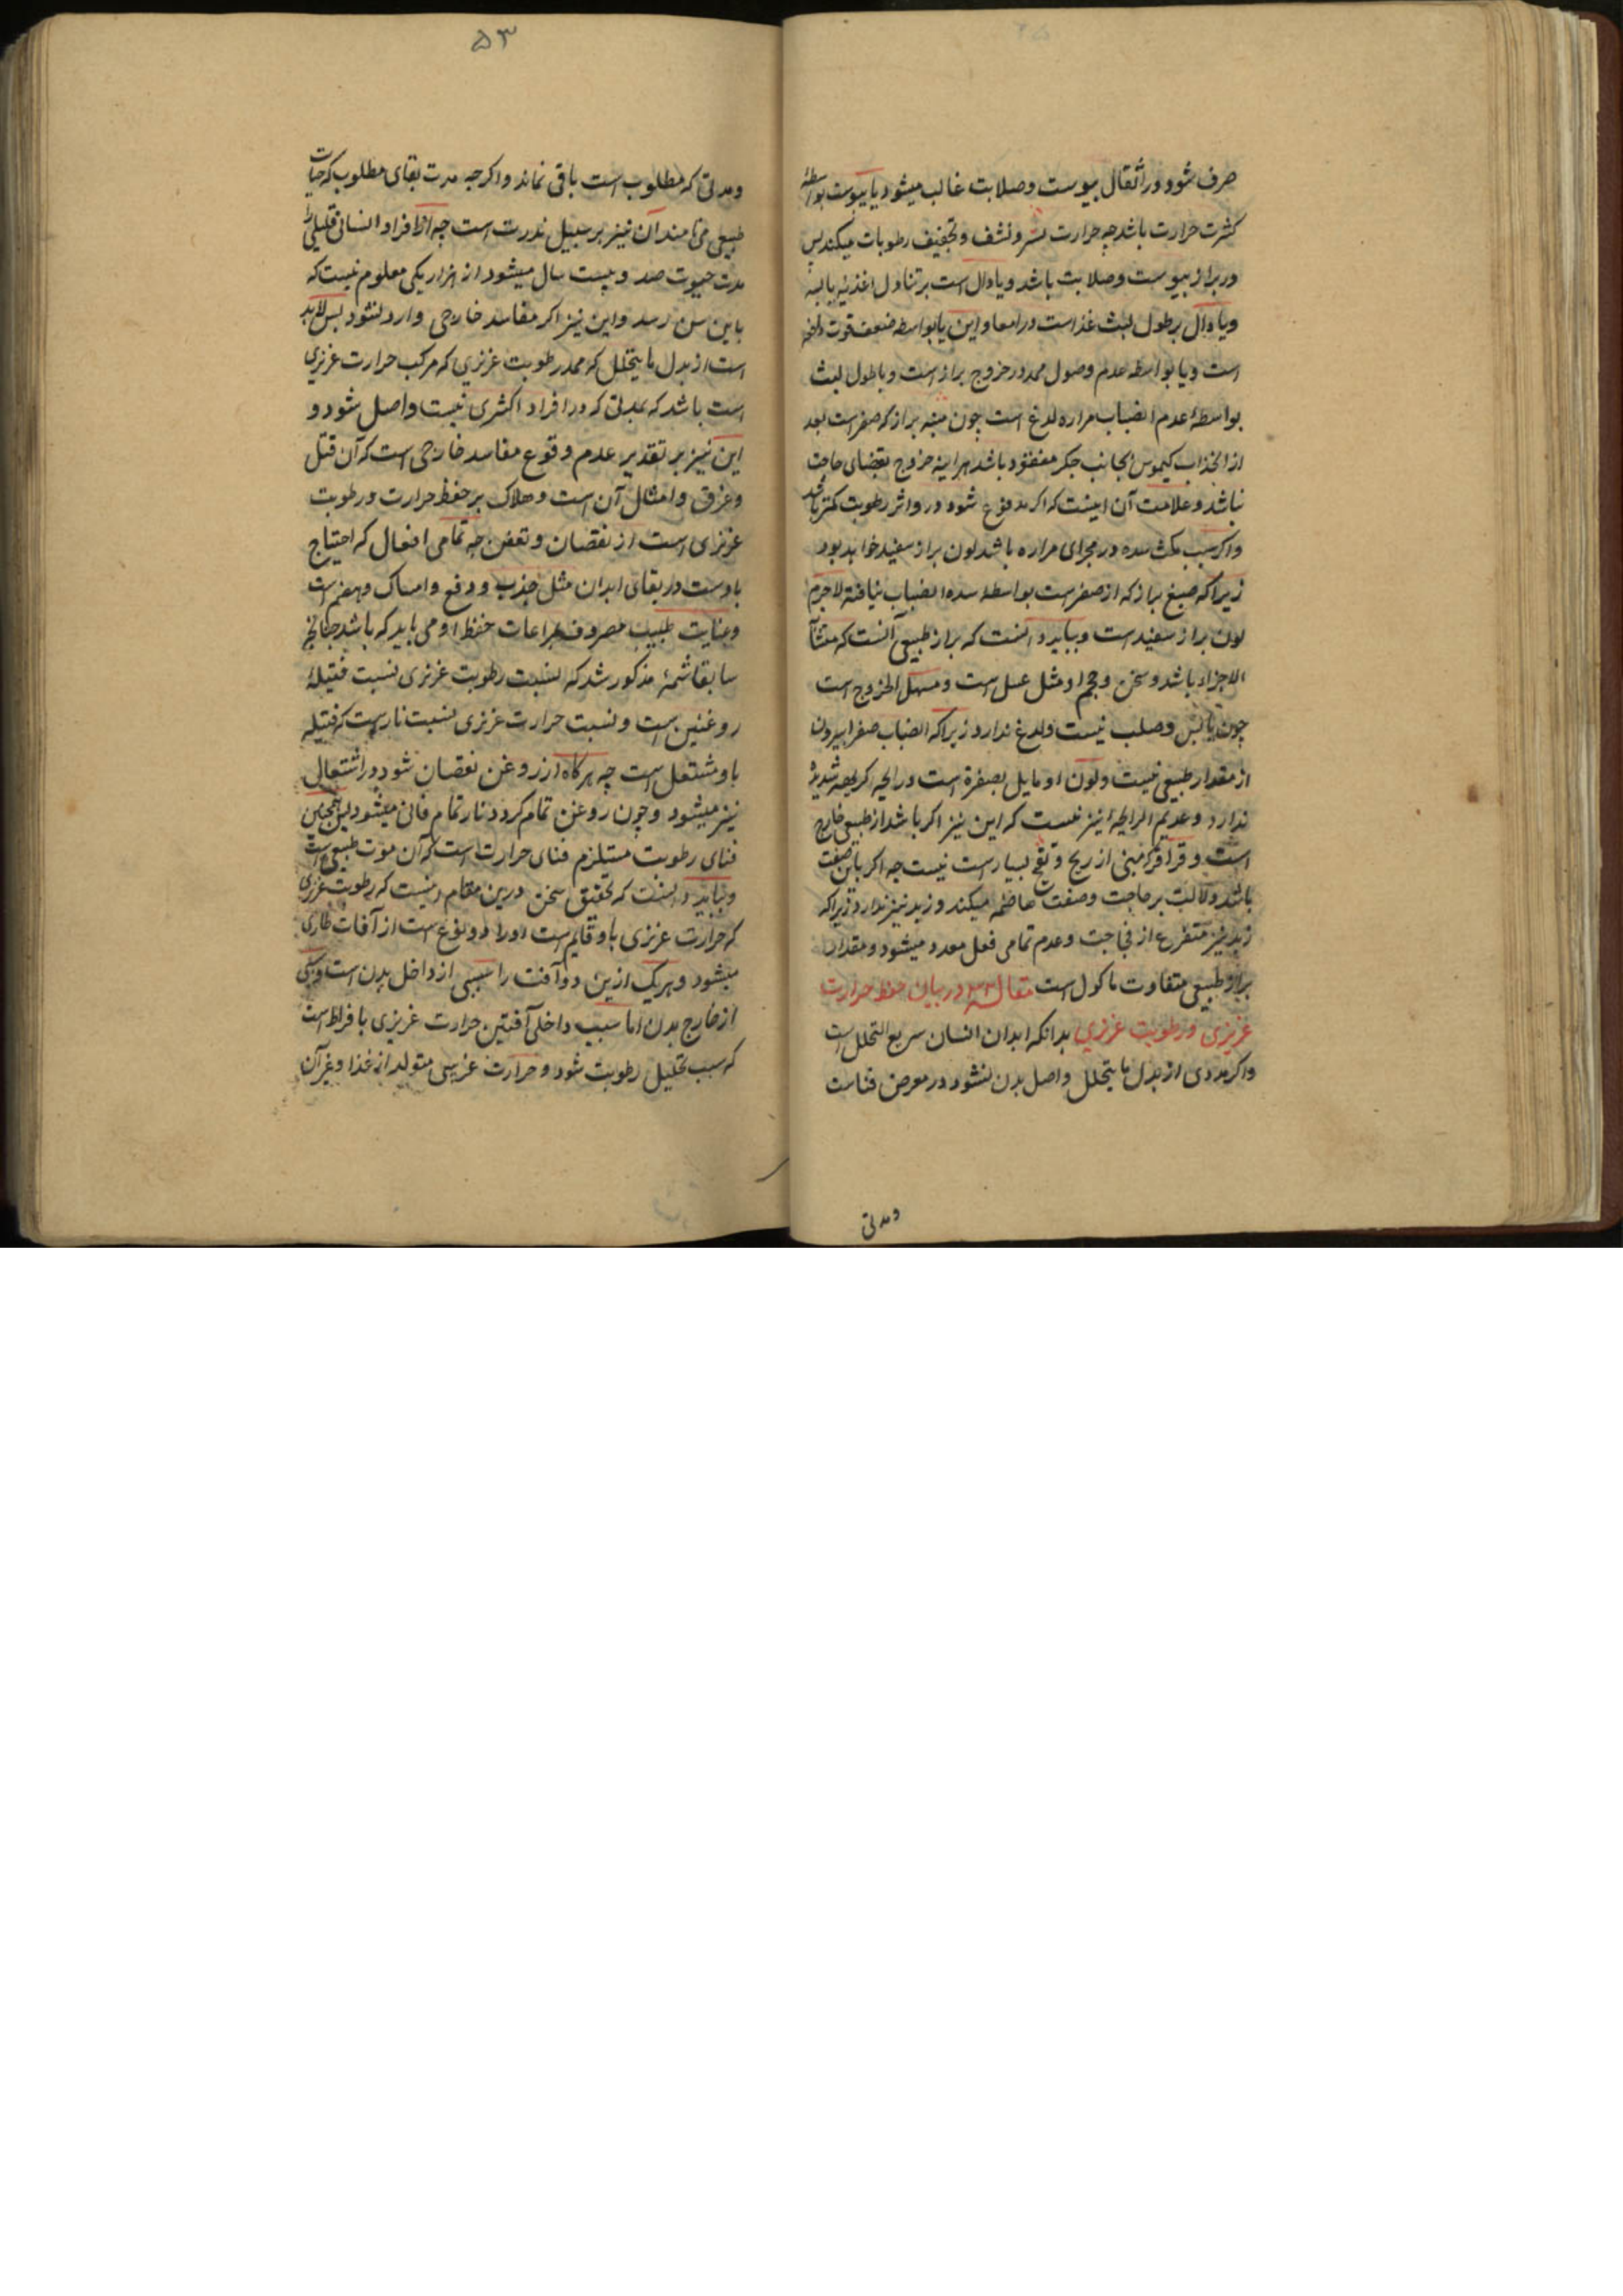 صرف شود در اثقال یبوست وصلابت غالب میشود یا یبوست بواسطهٔ
کثرت حرارت باشد چه حرارت نشر و نشف و تجفیف رطوبات میکند پس
در براز یبوست وصلابت باشد و یا دال است بر تناول اغذیه یابسه
و یا دال بر طول لبث غذاست در امعا و این یا بواسطه ضعف قوت دافعه
است و یا بواسطه عدم وصول ممد در خروج براز است و یا طول لبث
بواسطهٔ عدم انصباب مراره لدغ است چون منبه براز که صفر است بعد
از انجذاب کیموس بجانب جکر مفقود باشد هر اینه خروج بقضای حاجت
نباشد و علامت آن اینست که اکر مدفوع شود در و اثر رطوبت کمتر باشد
و اکر سبب مکث سده در مجرای مراره باشد لون براز سفید خواهد بود
زیرا که صبغ براز که از صفر است بواسطه سده انصباب نیافته لاجرم
لون براز سفید است و بباید دانست که براز طبیعی آنست که متشابه
الاجزاء باشد و سخن و حجم او مثل عسل است و سهل الخروج است
چون یابس وصلب نیست ولدغ ندارد زیرا که انصباب صفرا بیرون
از مقدار طبیعی نیست و لون او مایل بصفرة است و رایحه کریهه شدیدهٔ
ندارد و عدیم الرایحه نیز نیست که این نیز اکر باشد از طبیعی خارج
است و قراقر که مبنی از ریح و نفخ بسیارست نیست چه اکر باین صفت
باشد دلالت بر حاجت وضعف هاضمه میکند و زبد نیز ندارد زیرا که
زبد نیز متفرع از فجاجت و عدم تمامی فعل معده میشود و مقدار
براز طبیعی متفاوت ماکول است مقاله در بیان حفظ حرارت
غریزی و رطوبت غریزی بدانکه ابدان انسان سریع التحلل است
و اکر مددی از بدل ما یتحلل واصل بدن نشود در معرض فناست
ومدتی
۵۳
ومدتی که مطلوب است باقی نماند و اکرچه مدت بقای مطلوب که حیات
طبیعی می نامند آن نیز بر سبیل ندرت است چه از افراد انسانی قلیلی را
مدت حیوت صد و بیست سال میشود از هزار یکی معلوم نیست که
باین سن رسد و این نیز اکر مفاسد خارجی وارد نشود پس لابد
است از بدل ما یتحلل که ممد رطوبت غریزی که مرکب حرارت غریزی
است باشد که بمدتی که در افراد اکثری نیست واصل شود و
این نیز بر تقدیر عدم وقوع مفاسد خارجی است که آن قتل
وغرق و امثال آن است و هلاک بر حفظ حرارت و رطوبت
غریزی است از نقصان و تعفن چه تمامی افعال که احتیاج
باوست در بقای ابدان مثل جذب و دفع و امساک و هضم است
وعنایت طبیب مصروف بمراعات حفظ او می باید که باشد چنانچه
سابقا شمهٔ مذکور شد که نسبت رطوبت غریزی نسبت فتیلهٔ
روغنین است و نسبت حرارت غریزی نسبت نارست که فتیله
باو مشتعل است چه هرکاه از روغن نقصان شود در اشتعال
نیز میشود و چون روغن تمام کردد نار تمام فانی میشود پس همچنین
فنای رطوبت مستلزم فنای حرارت است که آن موت طبیعی است
و بباید دانست که تحقیق سخن درین مقام اینست که رطوبت غریزی
که حرارت غریزی باو قایم است او را دو نوع است از آفات طاری
میشود و هر یک ازین دو آفت را سببی از داخل بدن است و یکی
از خارج بدن اما سبب داخلی آفتین حرارت غریزی بافراط است
که سبب تحلیل رطوبت شود و حرارت غریبی متولد از غذا وغیر آن